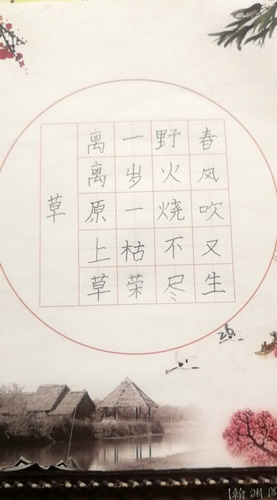 草
离离原上草
一岁一枯荣
野火烧不尽
春风吹又生
【翰渊